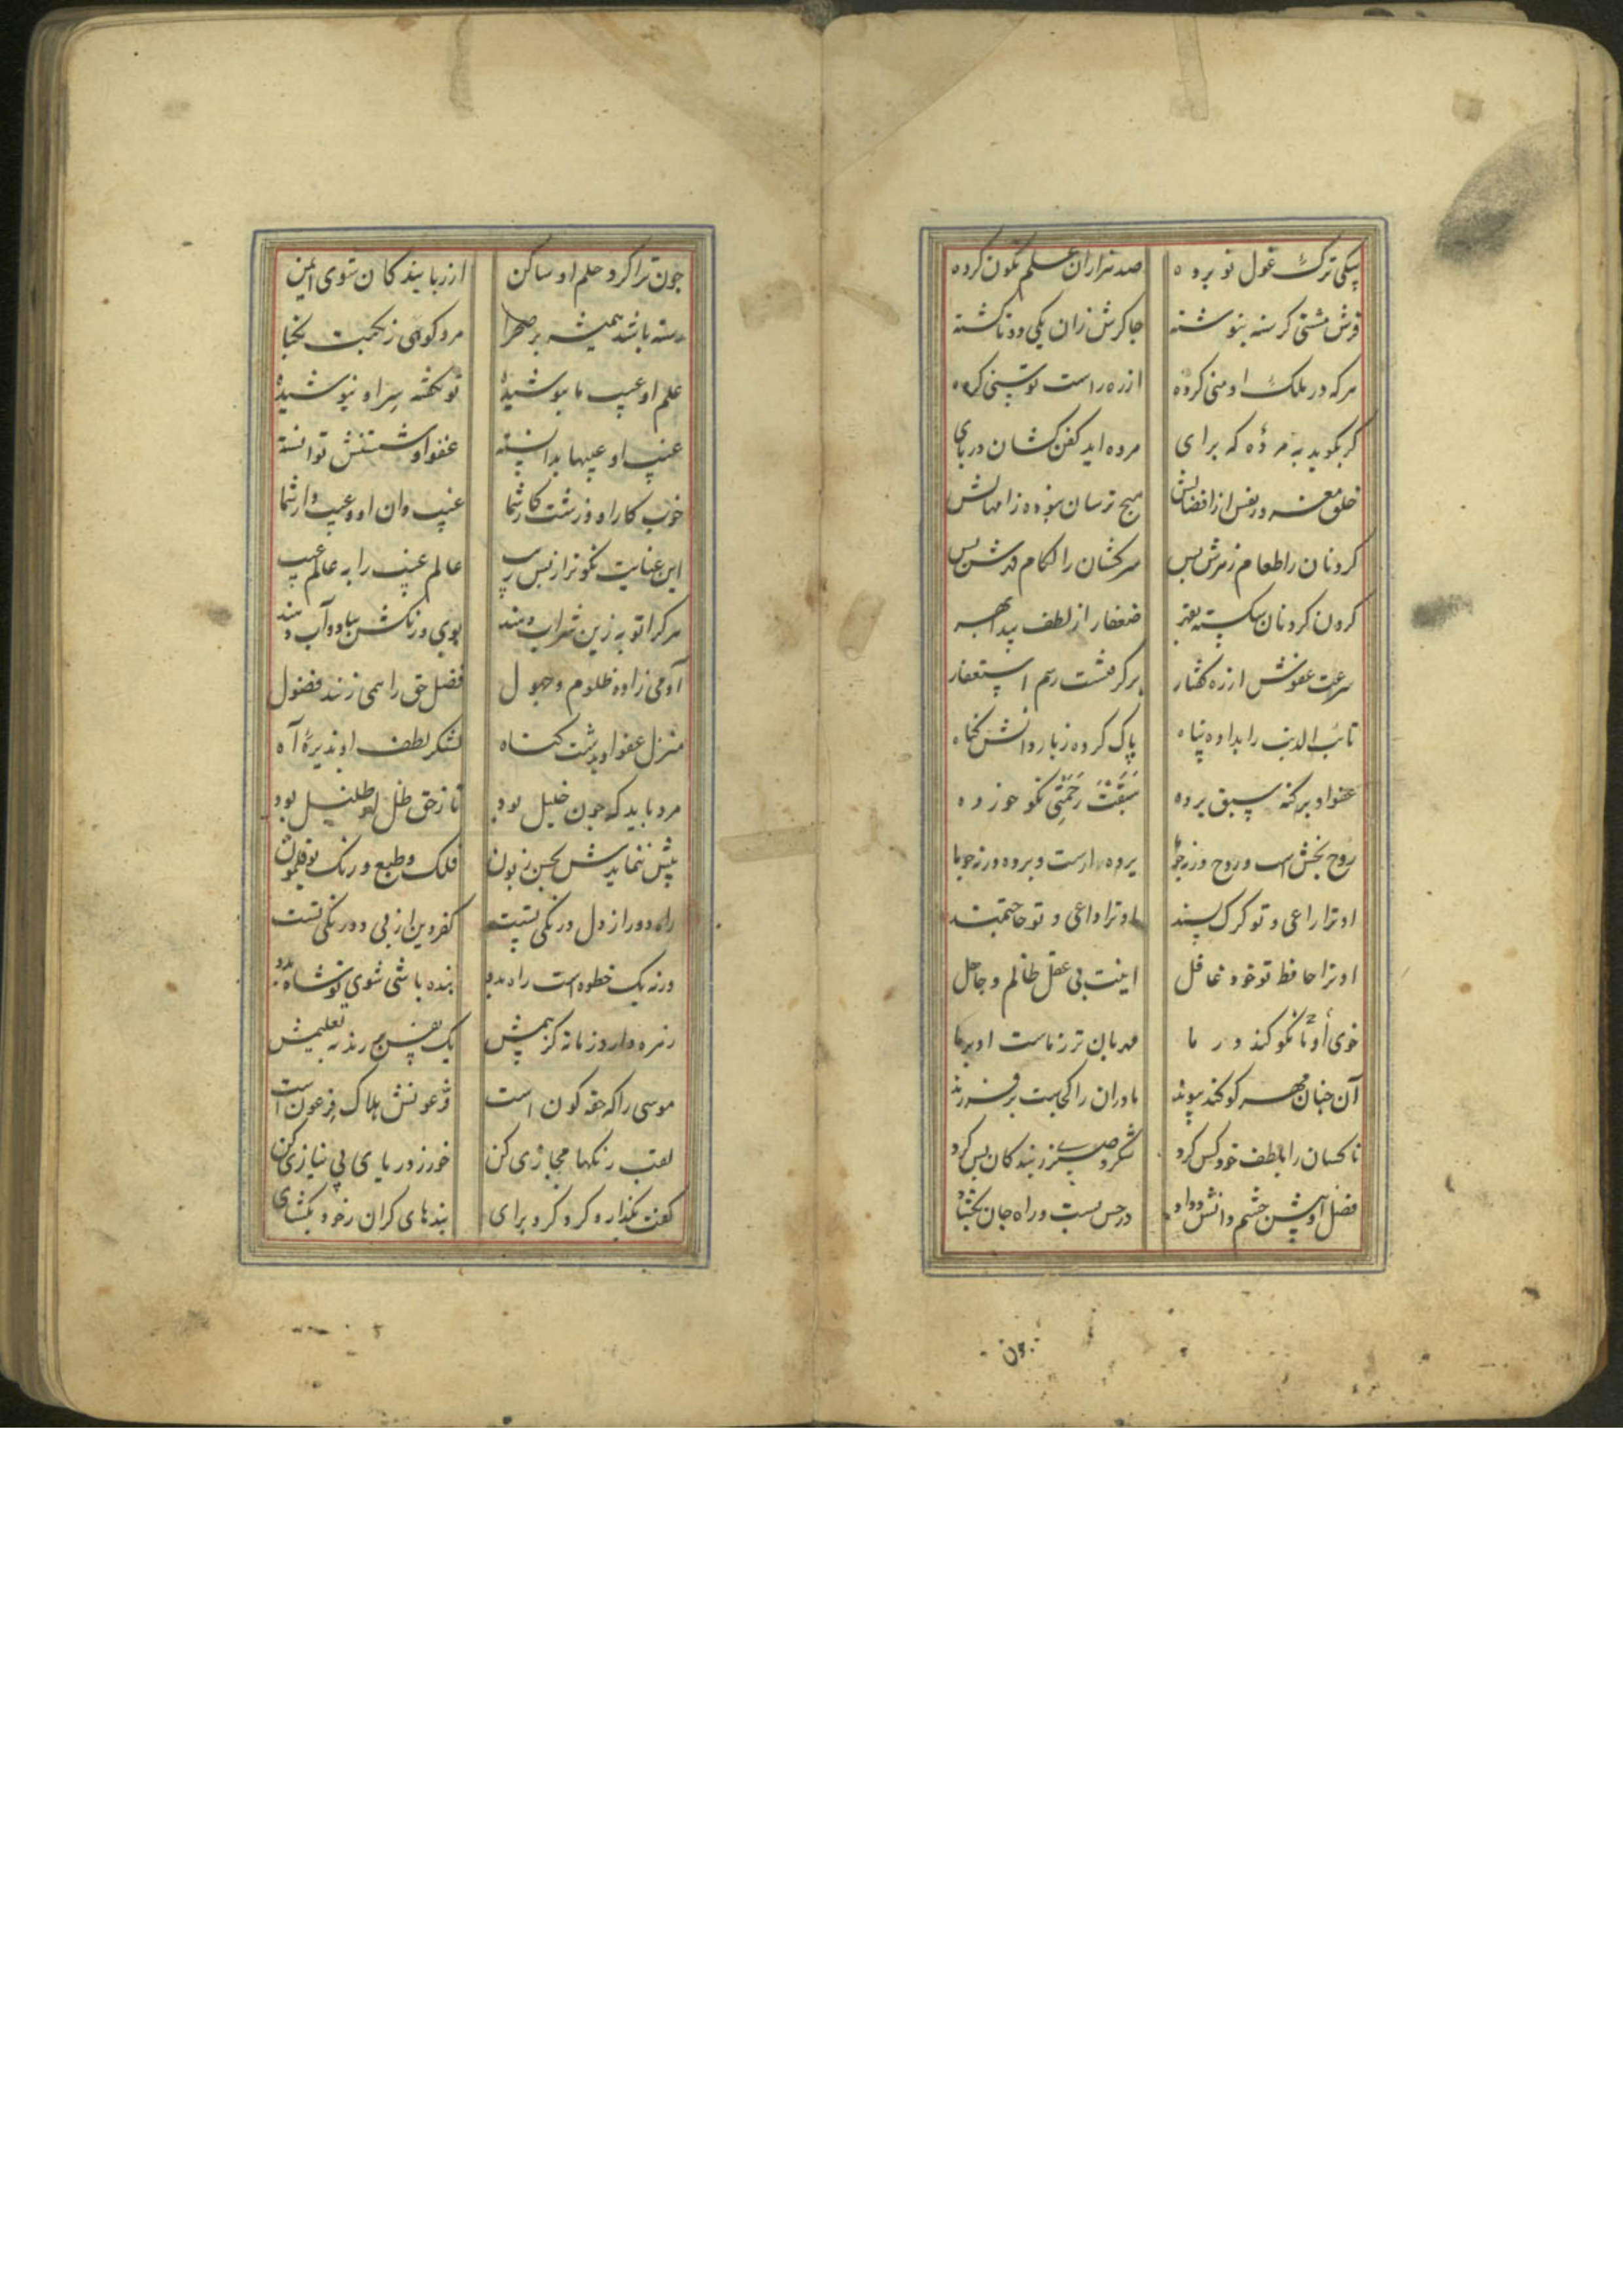 صد هزاران علم نگون کرده
فرش مشتی گرسنه بنوشته جاکرش زان یکی دو تا گشته
هرکه در ملک او منی کرده از ره راست توسنی کرده
گر بگوید به مرده که برای مرده اید کفن کشان در پای
خلق مغرور نفس از افضالش هیچ ترسان نبوده ز امهالش
گردنان را طعام زهرش بس سرکشان را لگام قهرش بس
گردن گردنان شکسته بقهر ضعفا را ز لطف بهر
سرعت عفوش از ره گفتار برگرفتست رسم استغفار
تائب الذنب را بداده پناه پاک کرده ز بار دانش گناه
عفو او بر گنه سبق برده سَبَقَت رَحمَتی نکو خورده
روح بخش است و روح ورنه چو ما پرده دارست و پرده در نه چو ما
او ترا راعی و تو گرگ پسند او ترا داعی و تو حاجتمند
او ترا حافظ تو خود غافل اینت بی عقل ظالم و جاهل
خوی او ما نکو کند در ما مهربان تر ز ماست او بر ما
آن چنان مهر کو کند پیوند مادران را کجاست بر فرزند
ناکسان را بلطف خود کس کرد شکر و صبر ز بندگان بس کرد
فضل او پیش چشم دانش و داد در حس بست و راه جان بگشاد
چون
چون ترا کرد حلم او ساکن از ربایندگان شوی ایمن
رسته باشد همیشه بر صحرا مرد کوهی ز نکبت نکبا
علم او عیب ما بپوشیده تو نگفته سر او نیوشیده
غیب او عیبها بدانسته عفو او شستنش توانسته
خوب کار او و زشت کار شما غیب دان او و عیب دار شما
این عنایت نکوتر از پس ریب عالم غیب را به عالم عیب
هر کرا توبه زین شراب دهند بوی و رنگش بباد و آب دهند
آدمی زاده ظلوم و جهول فضل حق را همی زند فضول
منزل عفو او بدشت گناه لشکر لطف او پذیره آه
مرد باید که چون خلیل بود تا ز حق ظل او ظلیل بود
پیش ننمایدش بحسن زبون فلک و طبع و رنگ بوقلمون
راه دور از دل درنگی تست کفر و دین از پی دو رنگی تست
ورنه یک خطوه است راه بدو بنده باشی شوی تو شاه بدو
زهره دارد زمانه کز بیمش یک نفس بر زند به تعلیمش
موسی را که حقه کون است فرعونش هلاک فرعون است
لعب رنگها مجازی کن خور ز دریای بی نیازی کن
گفت بگذار و گرد گرد برای بندهای گران ز خود بگشای